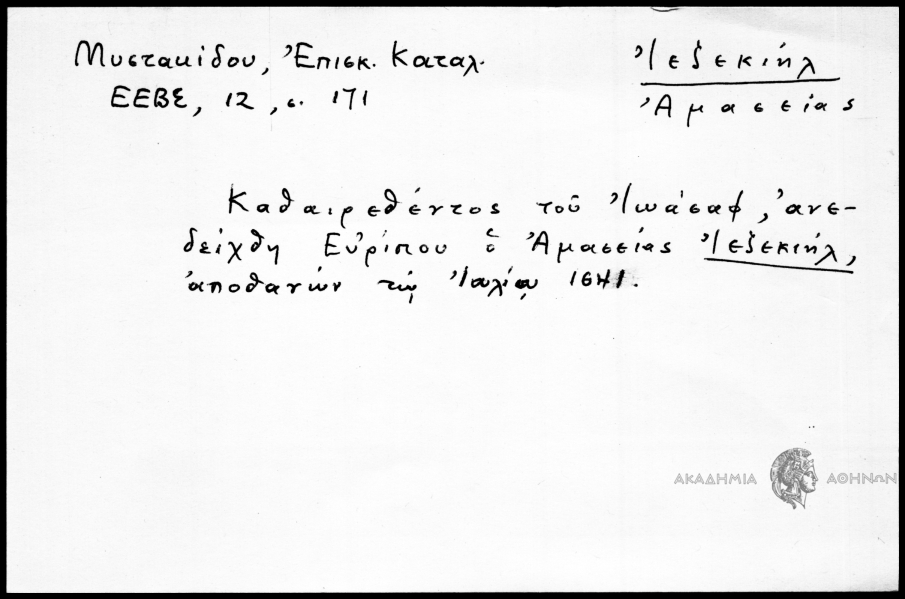 Μυστακίδου, Ἐπισκ. Καταλ.
ΕΕΒΣ, 12, σ. 171
Ἰεζεκιήλ
Ἀμασείας
Καθαιρεθέντος τοῦ Ἰωάσαφ, ἀνε-
δείχθη Εὐρίπου ὁ Ἀμασείας Ἰεζεκιήλ,
ἀποθανών τῷ Ἰουλίῳ 1641.
ΑΚΑΔΗΜΙΑ ΑΘΗΝΩΝ